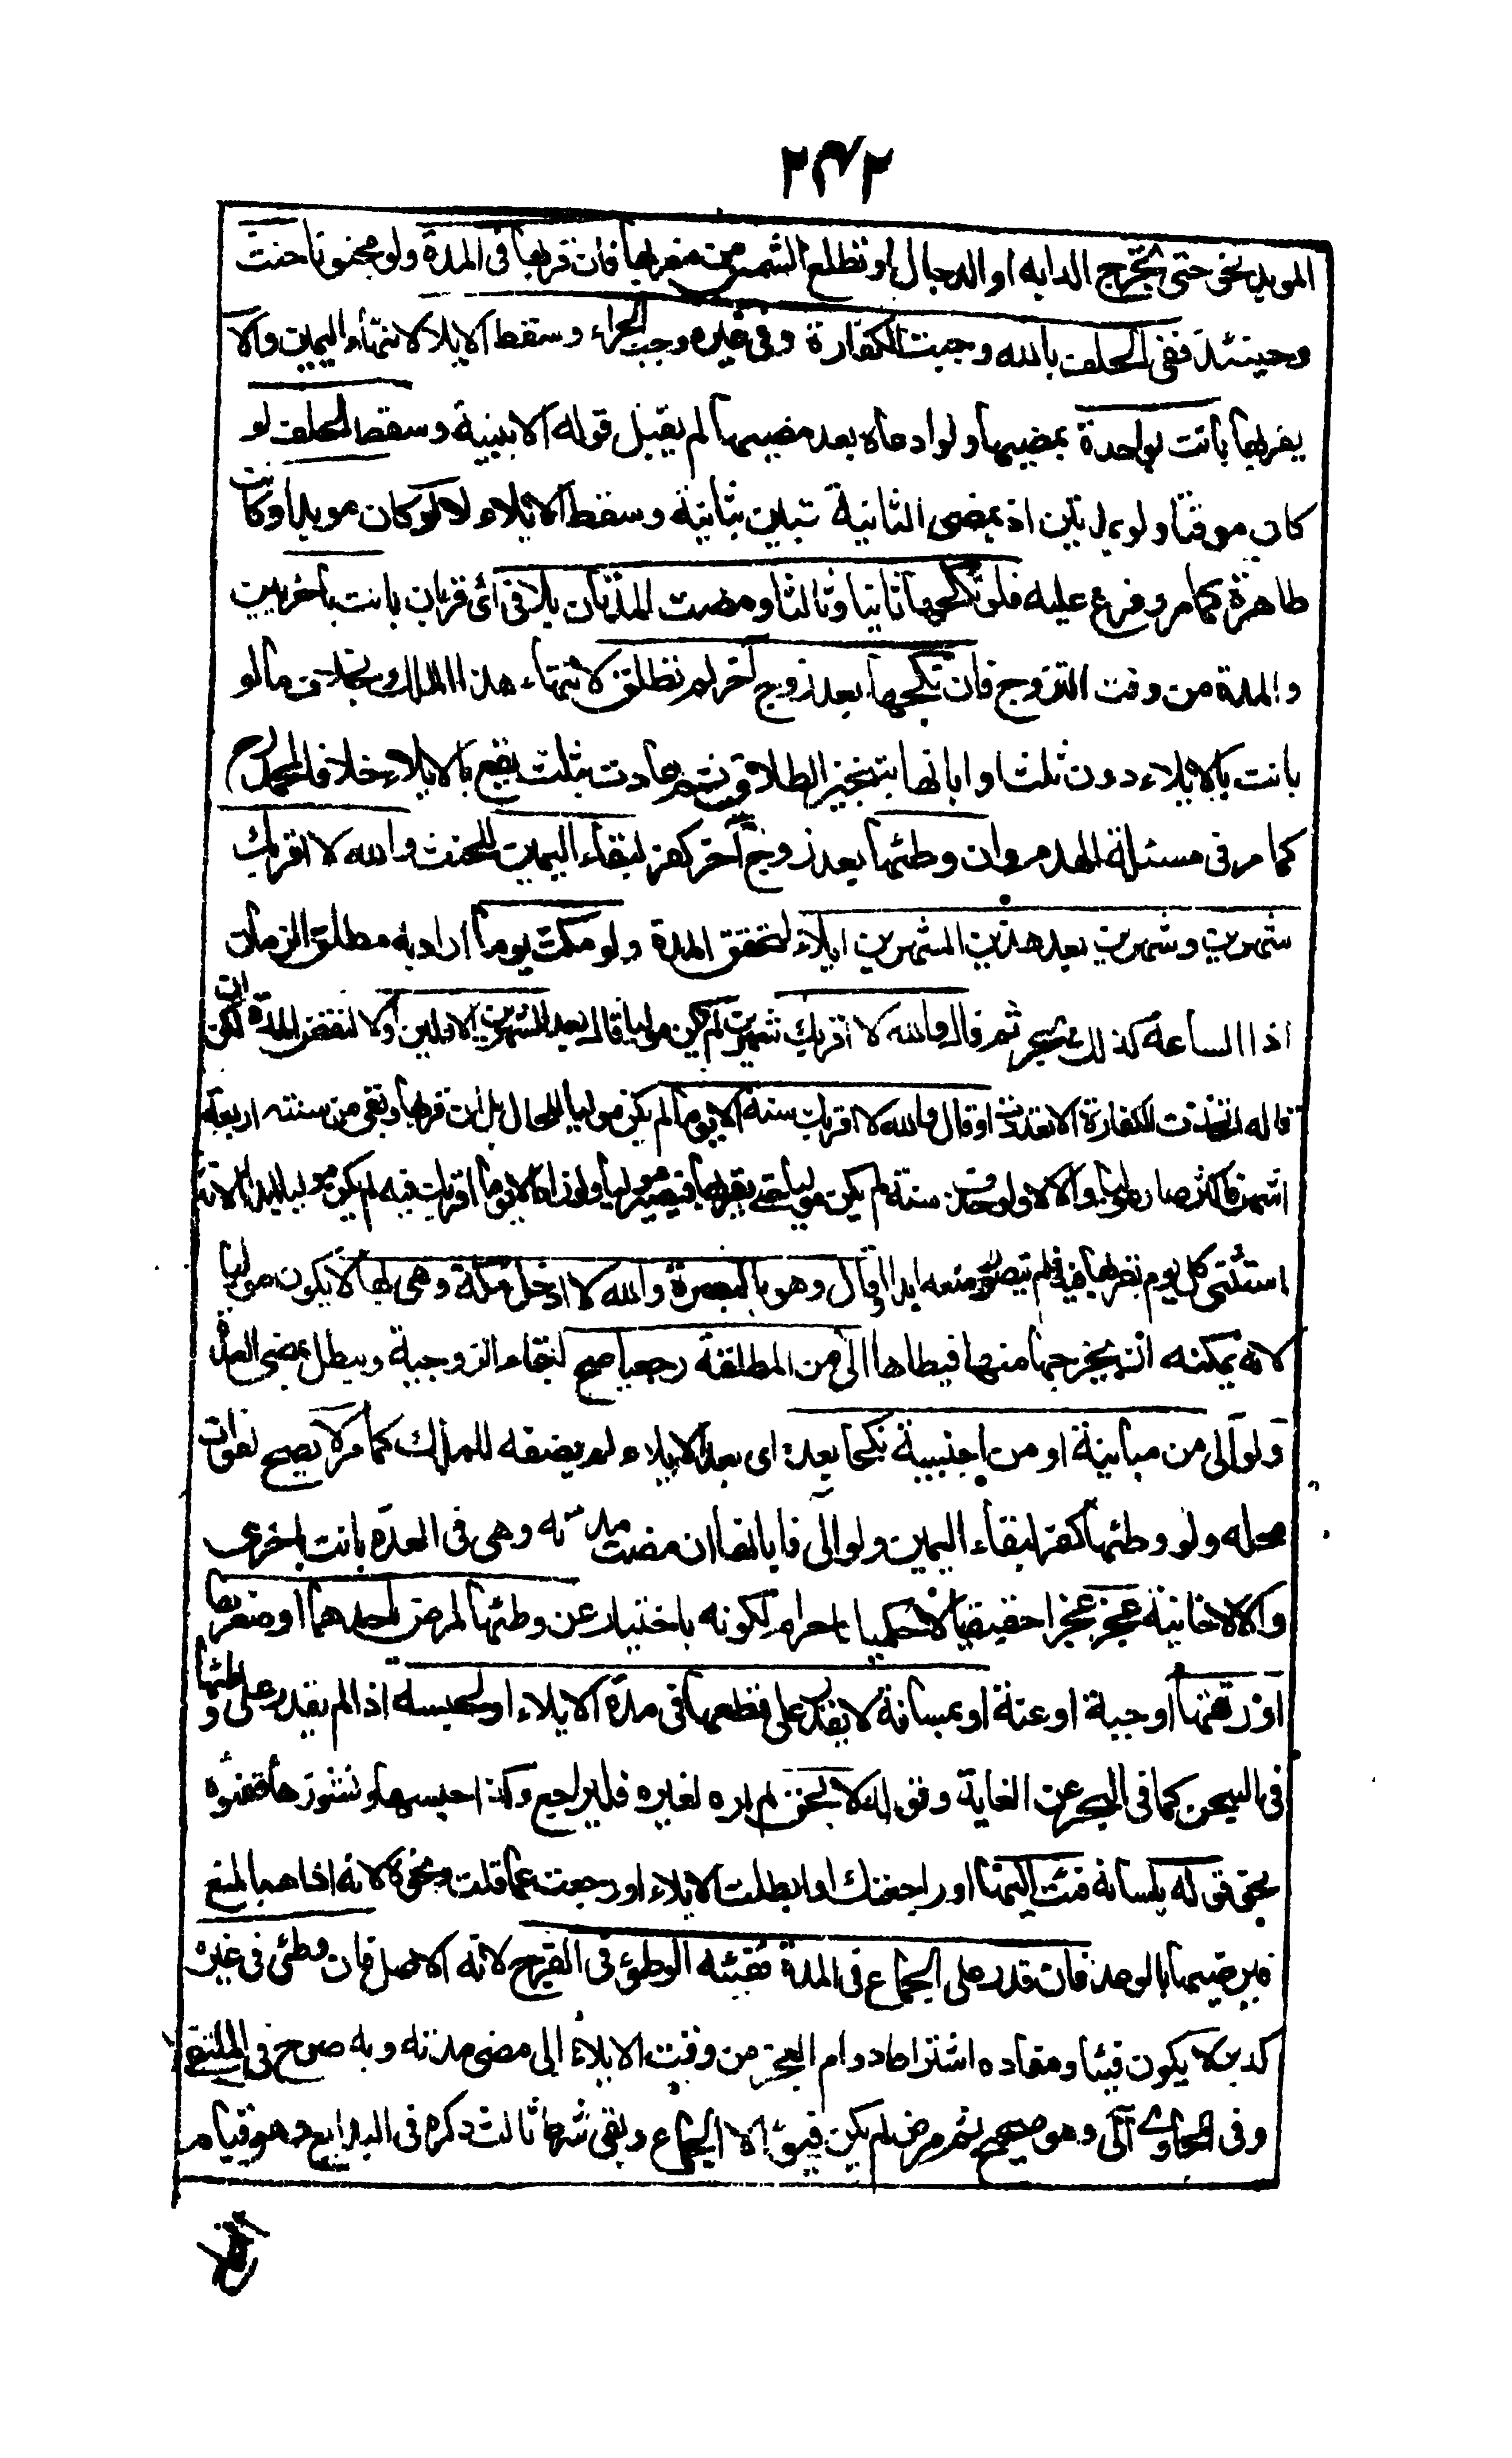 ٢٣٢
المويد نحو حتى تخرج الدابه او الدجال او تطلع الشمس من مغربها فان قربها فى المدة ولو مجنونا حنث
وحينئذ ففى الحلف بالله وجبت الكفارة وفى غيره وجب الجزاء وسقط الايلا لانتهاء اليمين والا
يقربها بانت بواحدة بمضيها ولو ادعاه بعد مضيها لم يقبل قوله الا ببينة وسقط الحلف لو
كان موقتا ولو بمدتين اذ بمضى الثانية تبين بثانية وسقط الايلاء لا لو كان موبدا وكانت
طاهرة كما مر وفرع عليه فلو نكحها ثانيا وثالثا ومضت المدتان بلا فئ اى قربان بانت باخريين
والمدة من وقت التزوج فان نكحها بعد زوج آخر لم تطلق لانتهاء هذا الملك بخلاف ما لو
بانت بالايلاء دون ثلث او ابانها بتنجيز الطلاق ثم عادت بثلث يقع بالايلاء خلافا لمحمد
كما مر فى مسئلة الهدم وان وطئها بعد زوج آخر كفر لبقاء اليمين للحنث والله لا اقربك
شهرين وشهرين بعد هذين الشهرين ايلاء لتحقق المدة ولو مكث يوما اراد به مطلق الزمان
اذ الساعة كذلك بحر ثم قال والله لا اقربك شهرين لم يكن موليا قال بعد الشهرين الاولين او لا لنقض المدة لكن ان
قاله اتحدت الكفارة والا تعددت او قال والله لا اقربك سنة الا يوما لم يكن موليا للحال بل ان قربها وبقى من سنته اربعة
اشهر فاكثر صار موليا والا لا ولو حذف سنة لم يكن موليا حتى يقربها فيصير موليا ولو زاد الا يوما اقربك فيه لم يكن موليا ابدا لانه
استثنى كل يوم يقربها فيه فلم يتصور منعه ابدا او قال وهو بالبصرة والله لا ادخل مكة وهى بها لا يكون موليا
لانه يمكنه ان يخرجها منها فيطأها آلى من المطلقة رجعيا صح لبقاء الزوجية ويبطل بمضى العدة
ولو آلى من مباينة او من اجنبية نكحها بعده اى بعد الايلاء لم يضفه للملك كما مر لا يصح لفوات
محله ولو وطئها كفر لبقاء اليمين ولو آلى فابانها ان مضت مدته وهى فى العدة بانت باخرى
والا لا خانية عجز عجزا حقيقيا لا حكميا باحرام لكونه باختياره عن وطئها لمرض باحدهما او صغرها
او رتقها او جبه او عنة او بمسافة لا يقدر على قطعها فى مدة الايلاء او لحبسه اذا لم يقدر على وطئها
فى السجن كما فى البحر عن الغاية وقوله لا بحق لم اره لغيره فليراجع وكذا حبسها ونشوزها ففيؤه
نحو قوله بلسانه فئت اليها او راجعتك او ابطلت الايلاء او رجعت عما قلت ونحوه لانه اذاها بالمنع
فيرضيها بالوعد فان قدر على الجماع فى المدة ففيئه الوطؤ فى الفرج لانه الاصل فان وطئ فى غيره
كدبر لا يكون فيئا ومفاده اشتراط دوام العجز من وقت الايلاء الى مضى مدته وبه صرح فى الملتقى
وفى الحاوى آلى وهو صحيح ثم مرض لم يكن فيؤه الا الجماع وبقى شرط ثالث ذكره فى البدايع وهو قيام